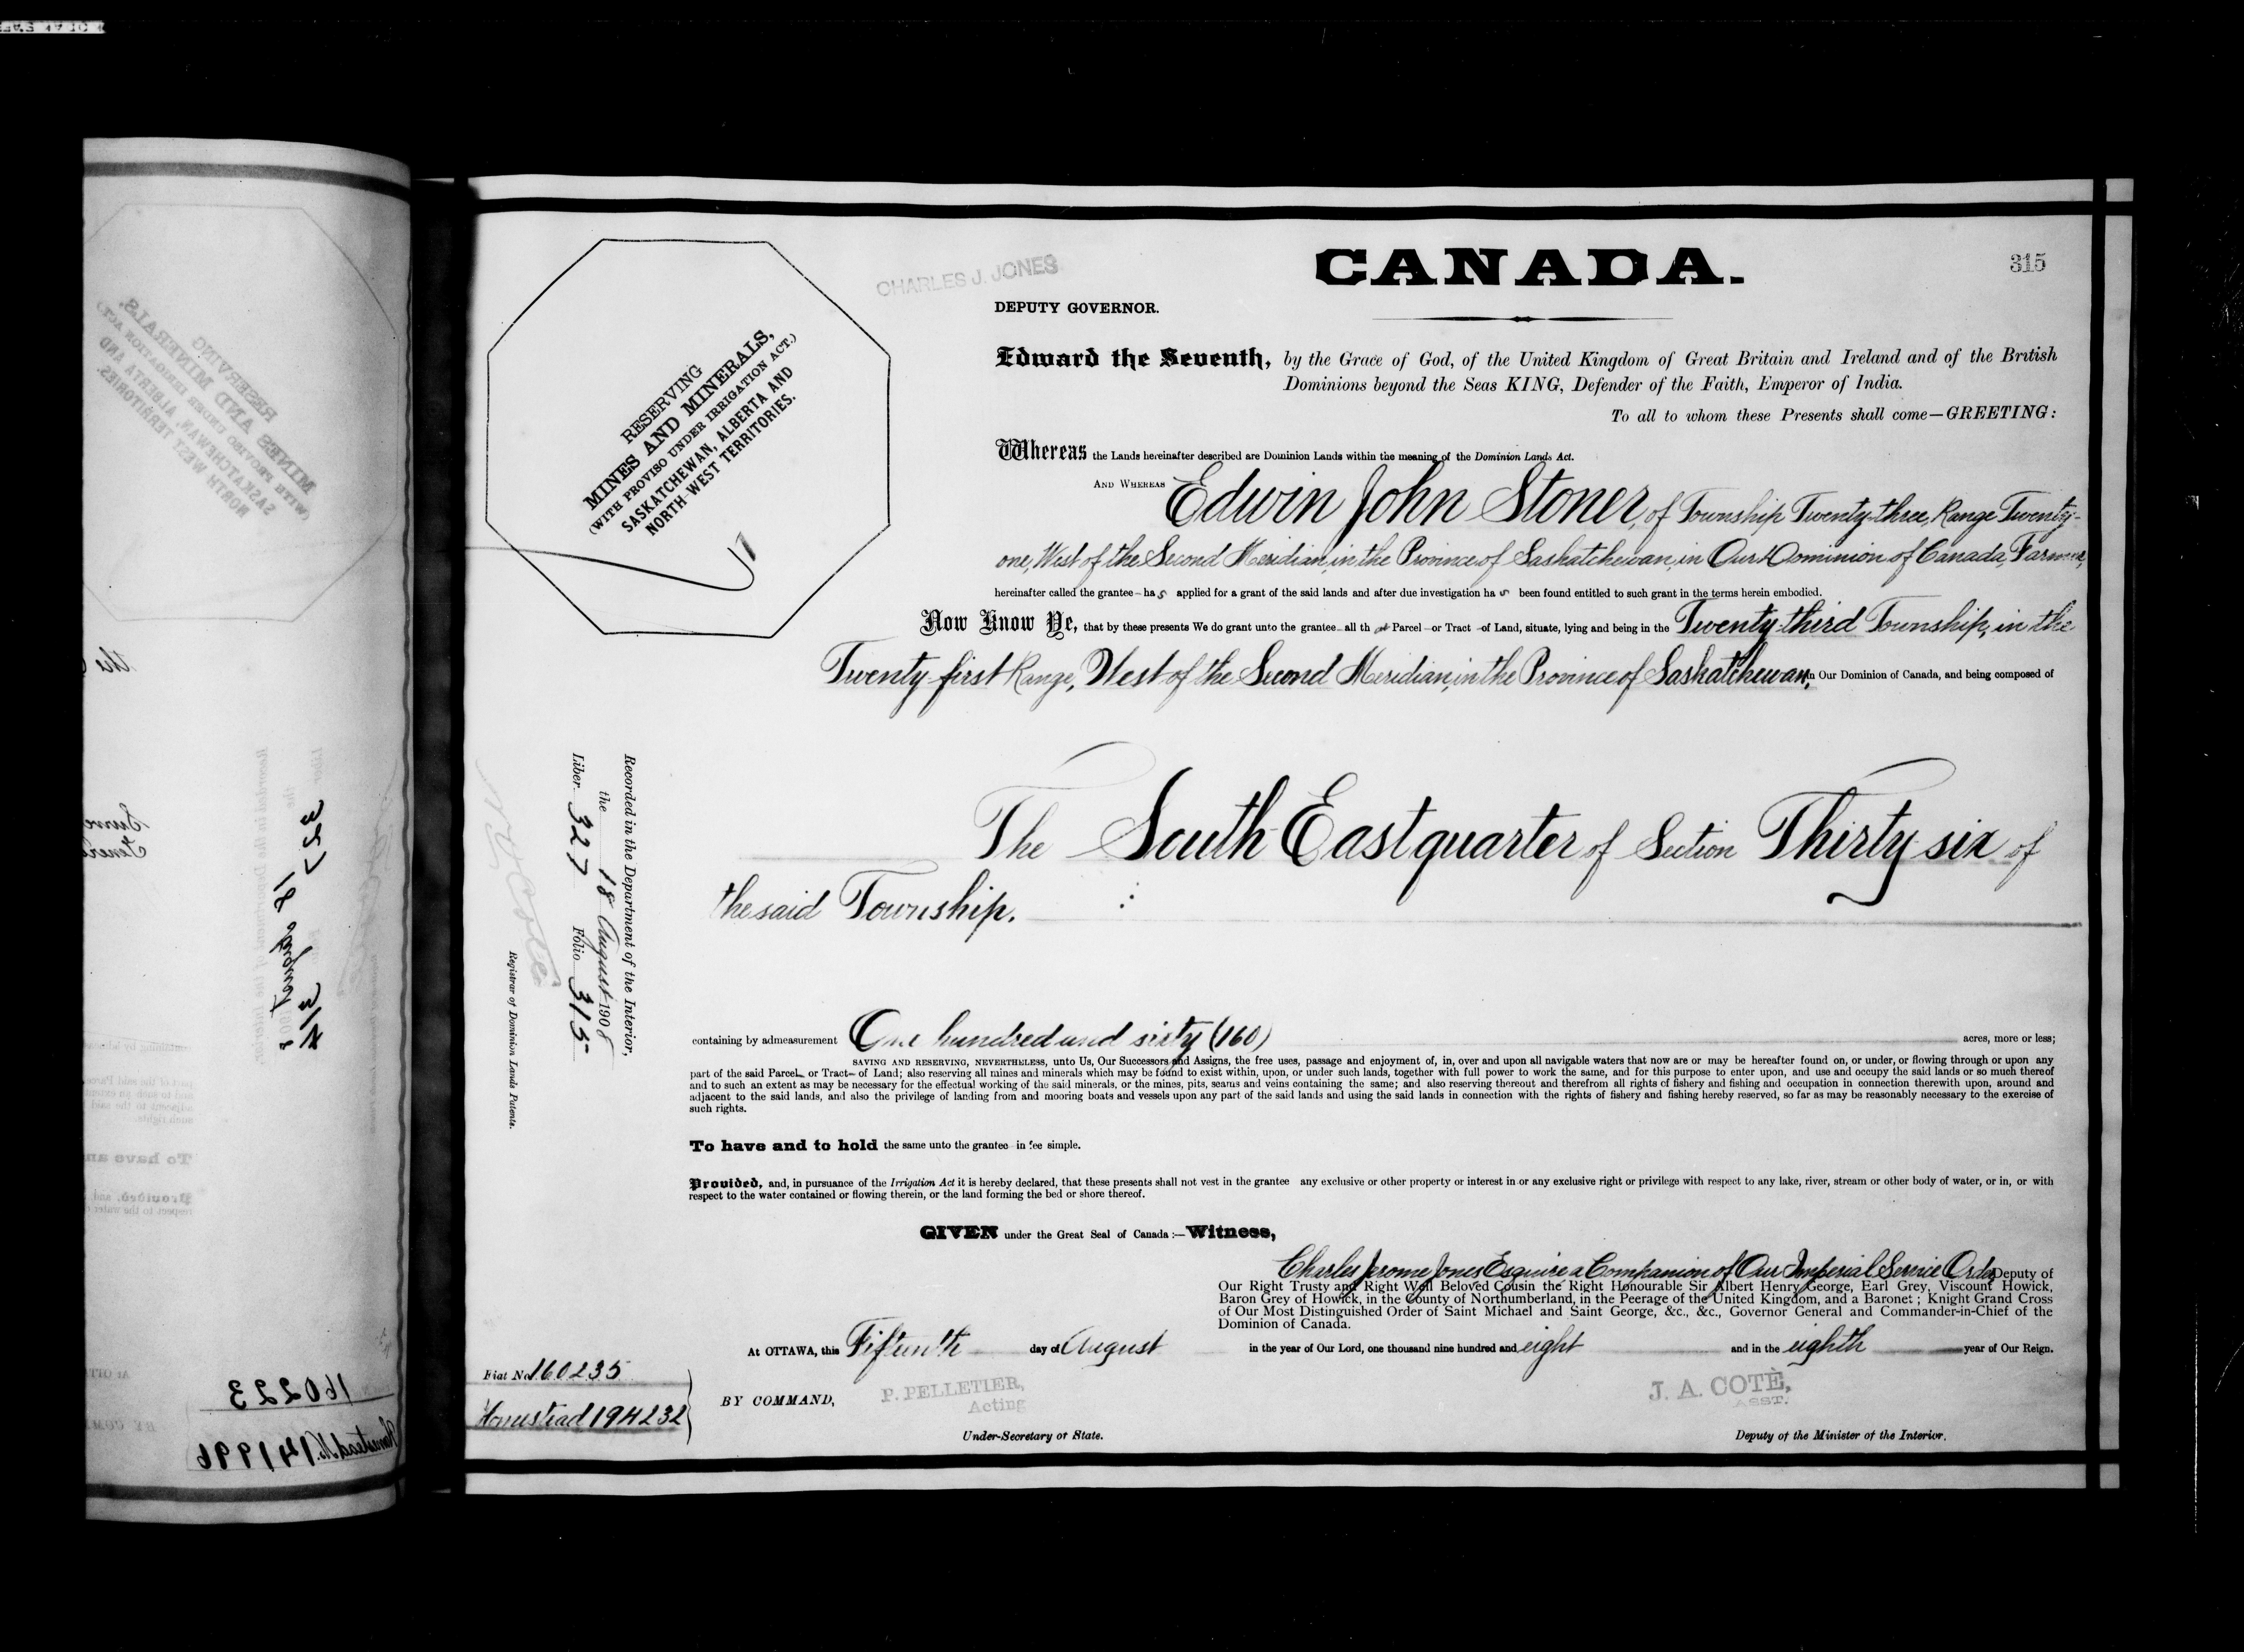 CHARLES J. JONES
CANADA.
315
DEPUTY GOVERNOR.
RESERVING
MINES AND MINERALS,
(WITH PROVISO UNDER IRRIGATION ACT.)
SASKATCHEWAN, ALBERTA AND
NORTH WEST TERRITORIES.
Edward the Seventh, by the Grace of God, of the United Kingdom of Great Britain and Ireland and of the British
Dominions beyond the Seas KING, Defender of the Faith, Emperor of India.
To all to whom these Presents shall come—GREETING:
Whereas the Lands hereinafter described are Dominion Lands within the meaning of the Dominion Lands Act.
AND WHEREAS Edwin John Stoner, of Township Twenty-three, Range Twenty-
one, West of the Second Meridian, in the Province of Saskatchewan, in Our Dominion of Canada, Farmer,
hereinafter called the grantee – has applied for a grant of the said lands and after due investigation has been found entitled to such grant in the terms herein embodied.
Now Know Ye, that by these presents We do grant unto the grantee all that Parcel or Tract of Land, situate, lying and being in the Twenty-third Township, in the
Twenty-first Range, West of the Second Meridian, in the Province of Saskatchewan, in Our Dominion of Canada, and being composed of
The South East quarter of Section Thirty-six of
the said Township.
Recorded in the Department of the Interior,
the 18 August 1908
Liber 327 Folio 315
Registrar of Dominion Lands Patents.
containing by admeasurement One hundred and sixty (160) acres, more or less;
SAVING AND RESERVING, NEVERTHELESS, unto Us, Our Successors and Assigns, the free uses, passage and enjoyment of, in, over and upon all navigable waters that now are or may be hereafter found on, or under, or flowing through or upon any
part of the said Parcel or Tract of Land; also reserving all mines and minerals which may be found to exist within, upon, or under such lands, together with full power to work the same, and for this purpose to enter upon, and use and occupy the said lands or so much thereof
and to such an extent as may be necessary for the effectual working of the said minerals, or the mines, pits, seams and veins containing the same; and also reserving thereout and therefrom all rights of fishery and fishing and occupation in connection therewith upon, around and
adjacent to the said lands, and also the privilege of landing from and mooring boats and vessels upon any part of the said lands and using the said lands in connection with the rights of fishery and fishing hereby reserved, so far as may be reasonably necessary to the exercise of
such rights.
To have and to hold the same unto the grantee in fee simple.
Provided, and, in pursuance of the Irrigation Act it is hereby declared, that these presents shall not vest in the grantee any exclusive or other property or interest in or any exclusive right or privilege with respect to any lake, river, stream or other body of water, or in, or with
respect to the water contained or flowing therein, or the land forming the bed or shore thereof.
GIVEN under the Great Seal of Canada:—Witness,
Charles Jerome Jones Esquire a Companion of Our Imperial Service Order Deputy of
Our Right Trusty and Right Well Beloved Cousin the Right Honourable Sir Albert Henry George, Earl Grey, Viscount Howick,
Baron Grey of Howick, in the County of Northumberland, in the Peerage of the United Kingdom, and a Baronet; Knight Grand Cross
of Our Most Distinguished Order of Saint Michael and Saint George, &c., &c., Governor General and Commander-in-Chief of the
Dominion of Canada.
At OTTAWA, this Fifteenth day of August in the year of Our Lord, one thousand nine hundred and eight and in the eighth year of Our Reign.
Fiat No 160235
Homestead 194232
BY COMMAND,
P. PELLETIER,
Acting
Under-Secretary of State.
J. A. COTÉ,
ASST.
Deputy of the Minister of the Interior.
160223
Homestead No. 141996